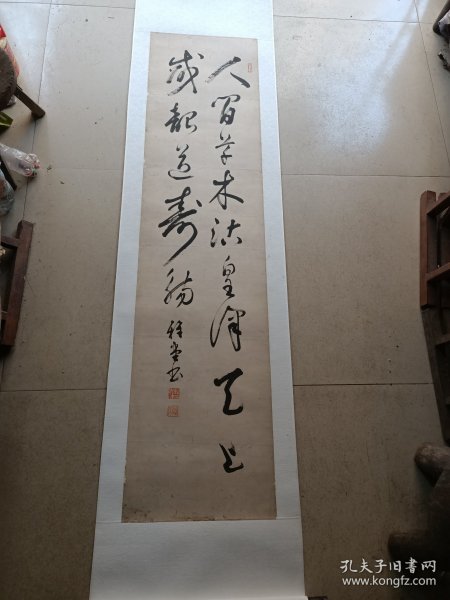 人間草木沾皇澤天上
盛
道壽觴
書
孔夫子旧书网
www.kongfz.com